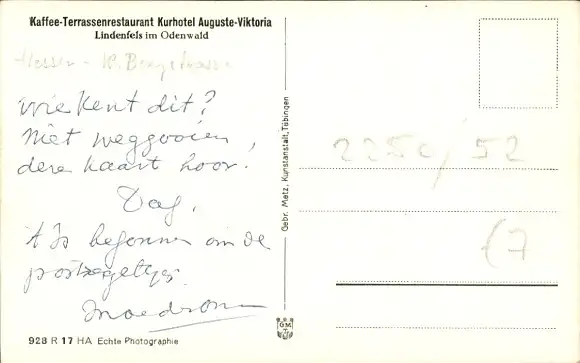 Kaffee-Terrassenrestaurant Kurhotel Auguste-Viktoria
Lindenfels im Odenwald
Hessen - K. Bergstrasse
wie kent dit?
niet weggooien,
deze kaart hoor.
Dag,
't Is begonnen om de
postzegeltjes
Gebr. Metz, Kunstanstalt, Tübingen
2250/52
(7
GM
928 R 17 HA Echte Photographie